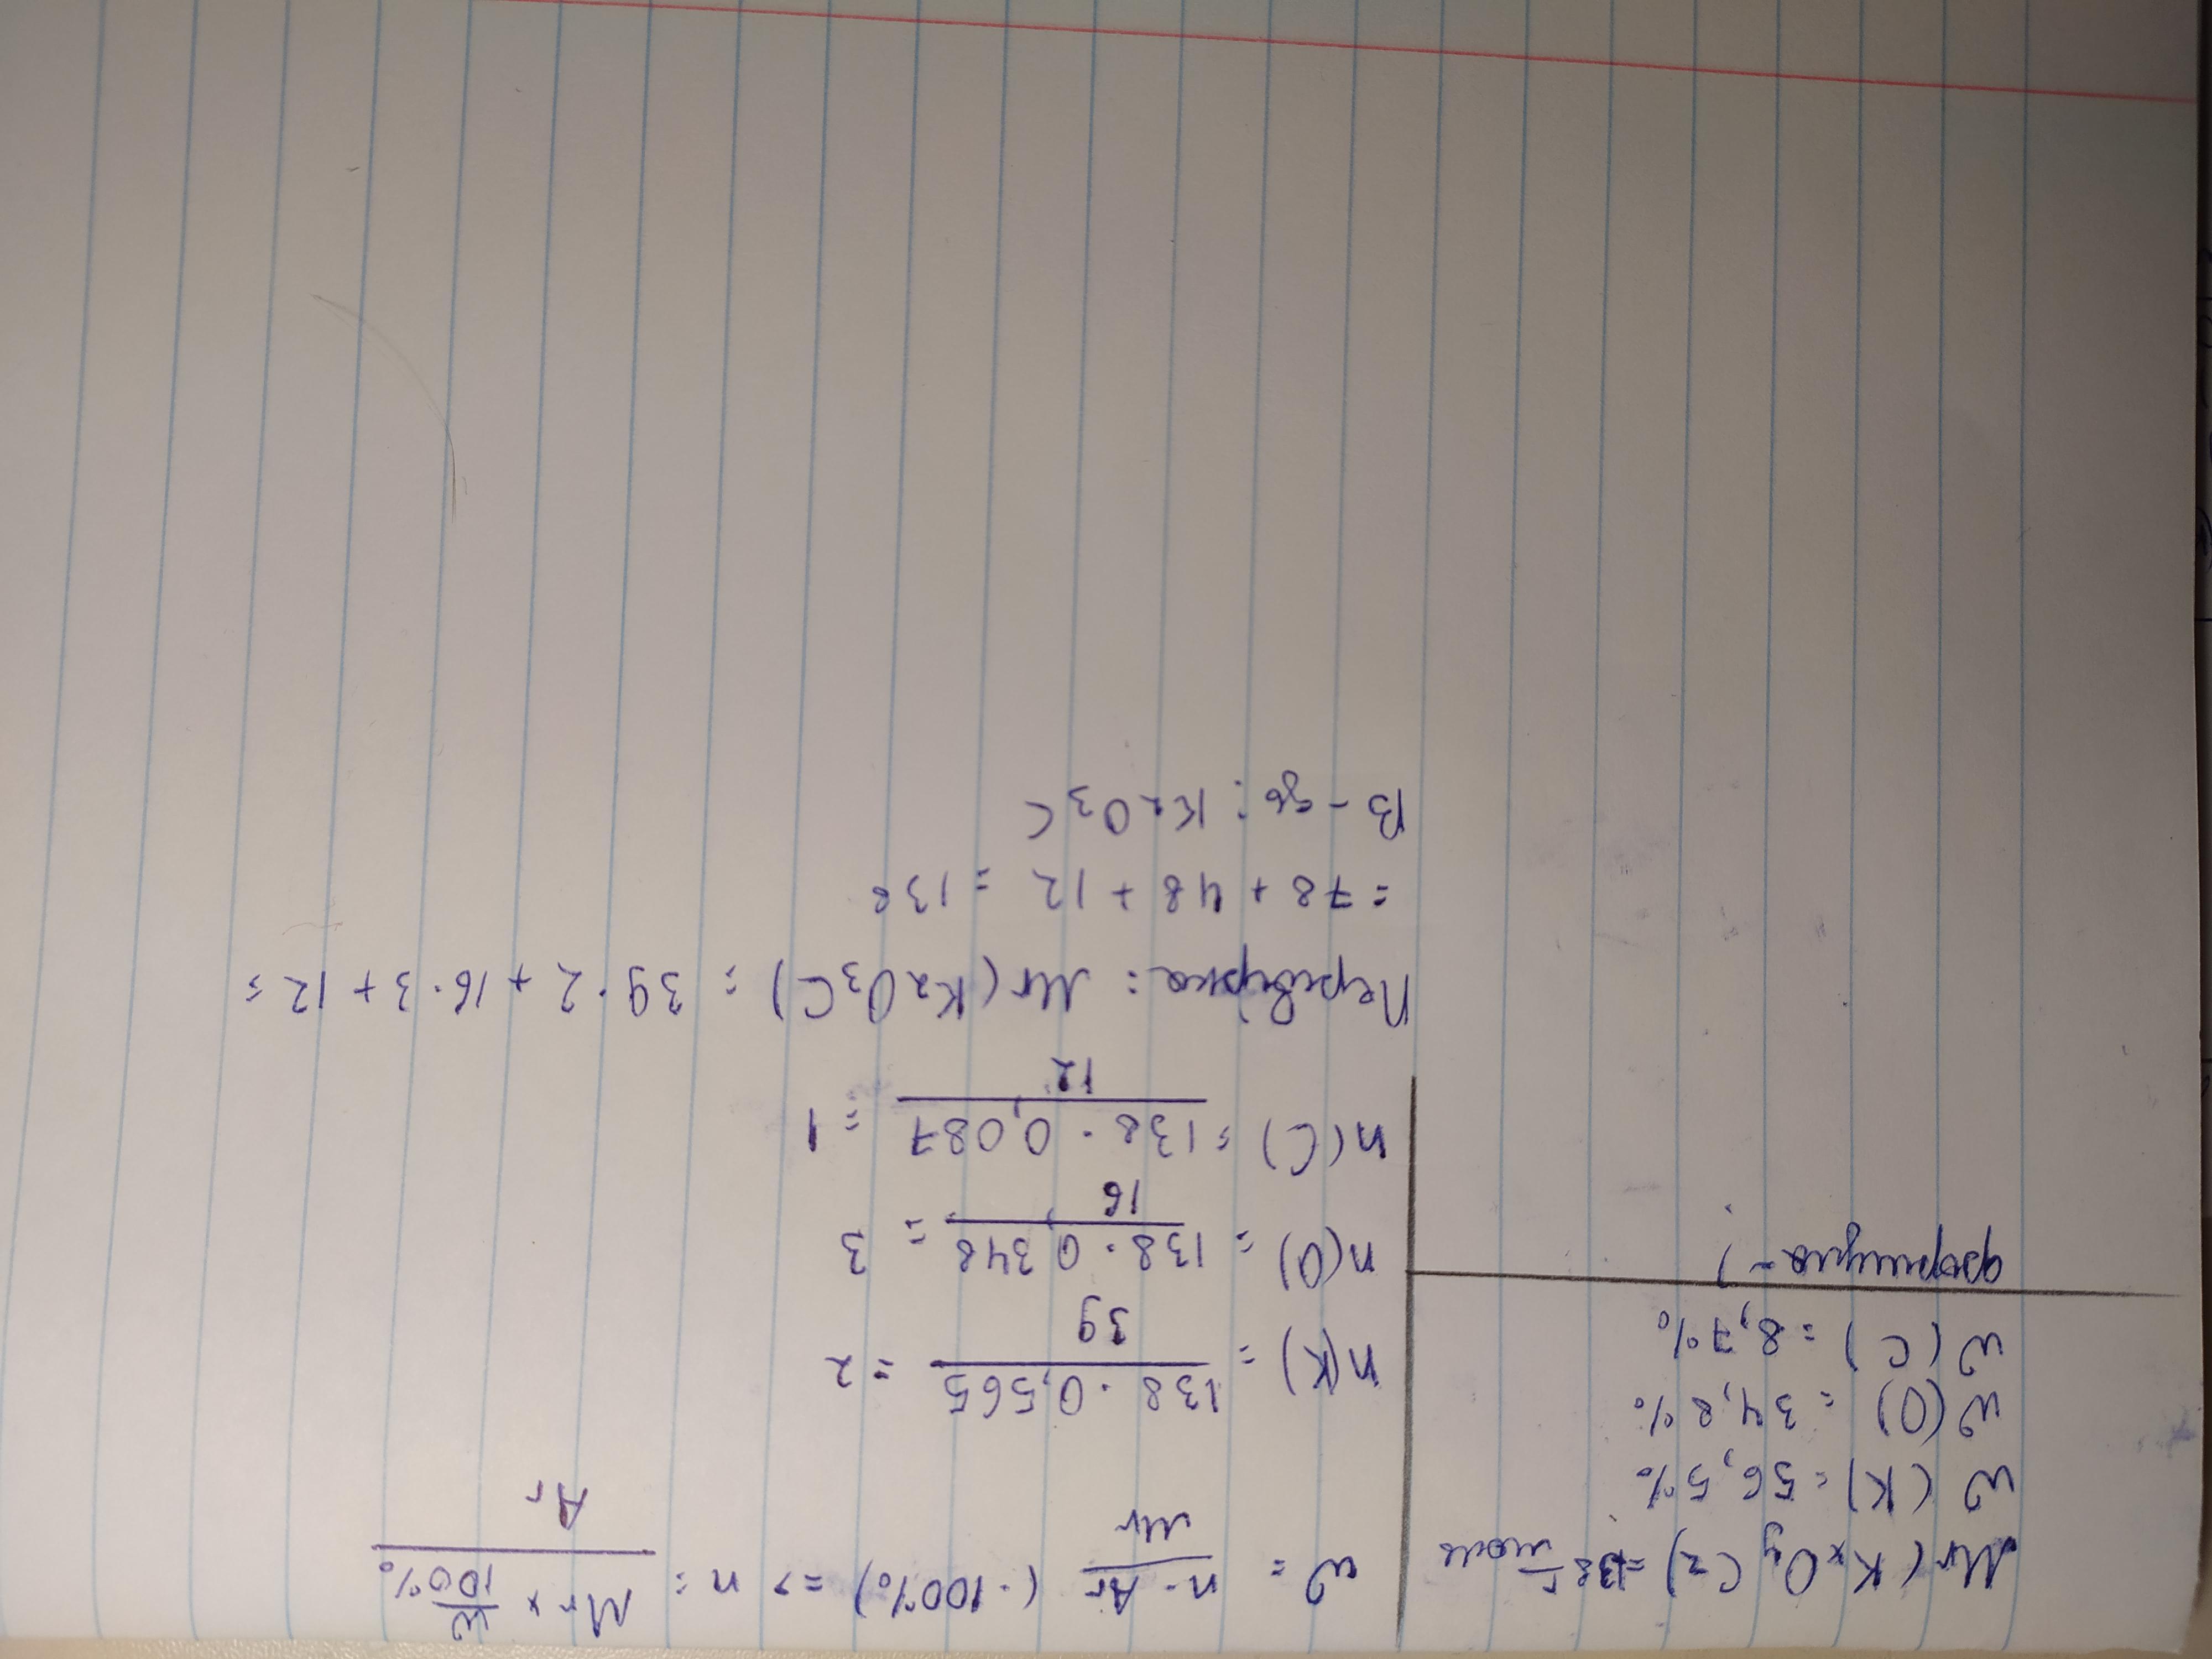 Mr(KxOyCz)=138 г/моль
W(K)=56,5%
W(O) = 34,8%
W(C) = 8,7%
формула-?
W = n·Ar/Mr (·100%) => n = Mr × W/100% / Ar
n(K) = 138·0,565/39 = 2
n(O) = 138·0,348/16 = 3
n(C) = 138·0,087/12 = 1
Перевірка: Mr(K2O3C) = 39·2+16·3+12=
=78+48+12=138
В-дь: K2O3C